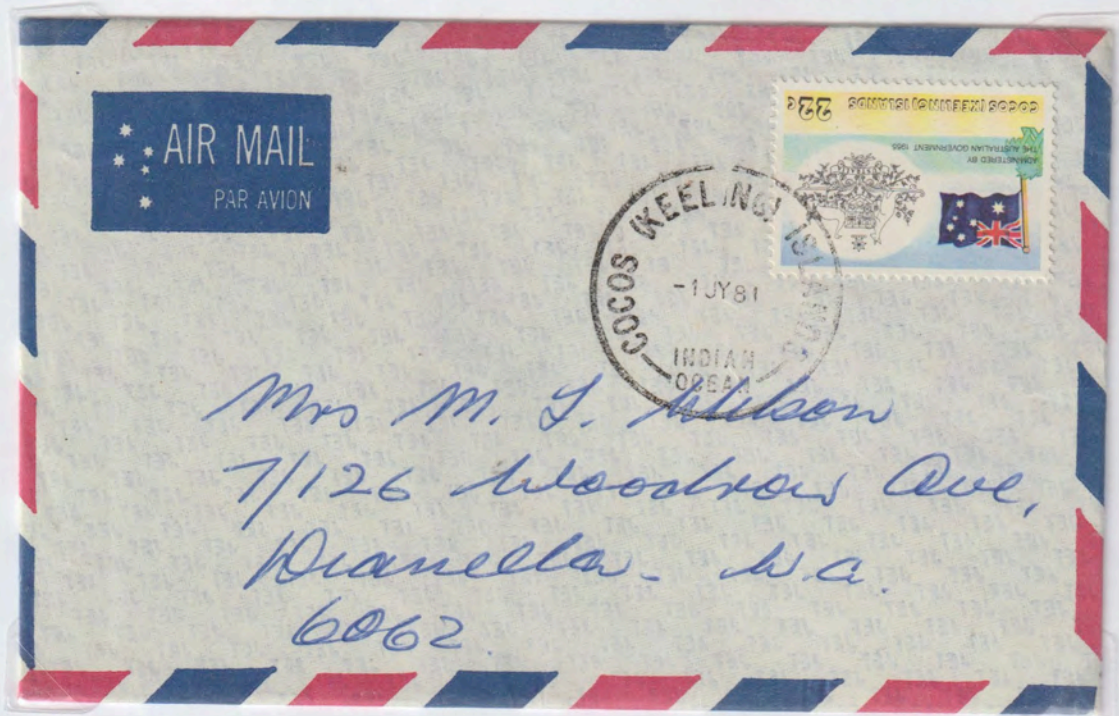 AIR MAIL
PAR AVION
COCOS (KEELING) ISLANDS
22c
ADMINISTERED BY
THE AUSTRALIAN GOVERNMENT 1955
COCOS (KEELING) ISLANDS
-1JY81
INDIAN
OCEAN
Mrs M. L. Wilson
7/126 Woodrow Ave,
Dianella. W.A.
6062.